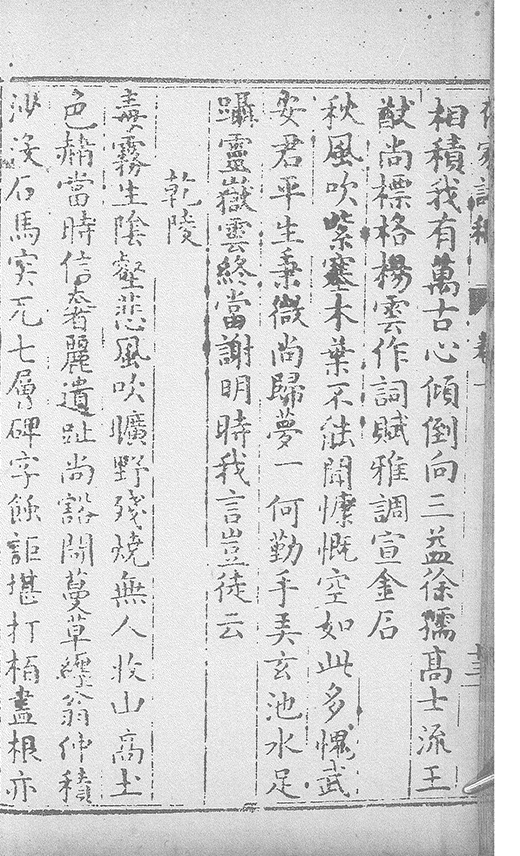 相積我有萬古心傾倒向三益徐孺高士流王
猷尚標格楊雲作詞賦雅調宣金石
秋風吹紫塞木葉不能聞慷慨空如此多愧武
安君平生秉微尚歸夢一何勤手弄玄池水足
躡靈嶽雲終當謝明時我言豈徒云
乾陵
毒霧生陰壑悲風吹曠野殘燒無人收山高土
色赭當時信奢麗遺趾尚豁閜蔓草經翁仲積
沙沒石馬穴兀七層碑字蝕詎堪打栢盡根亦